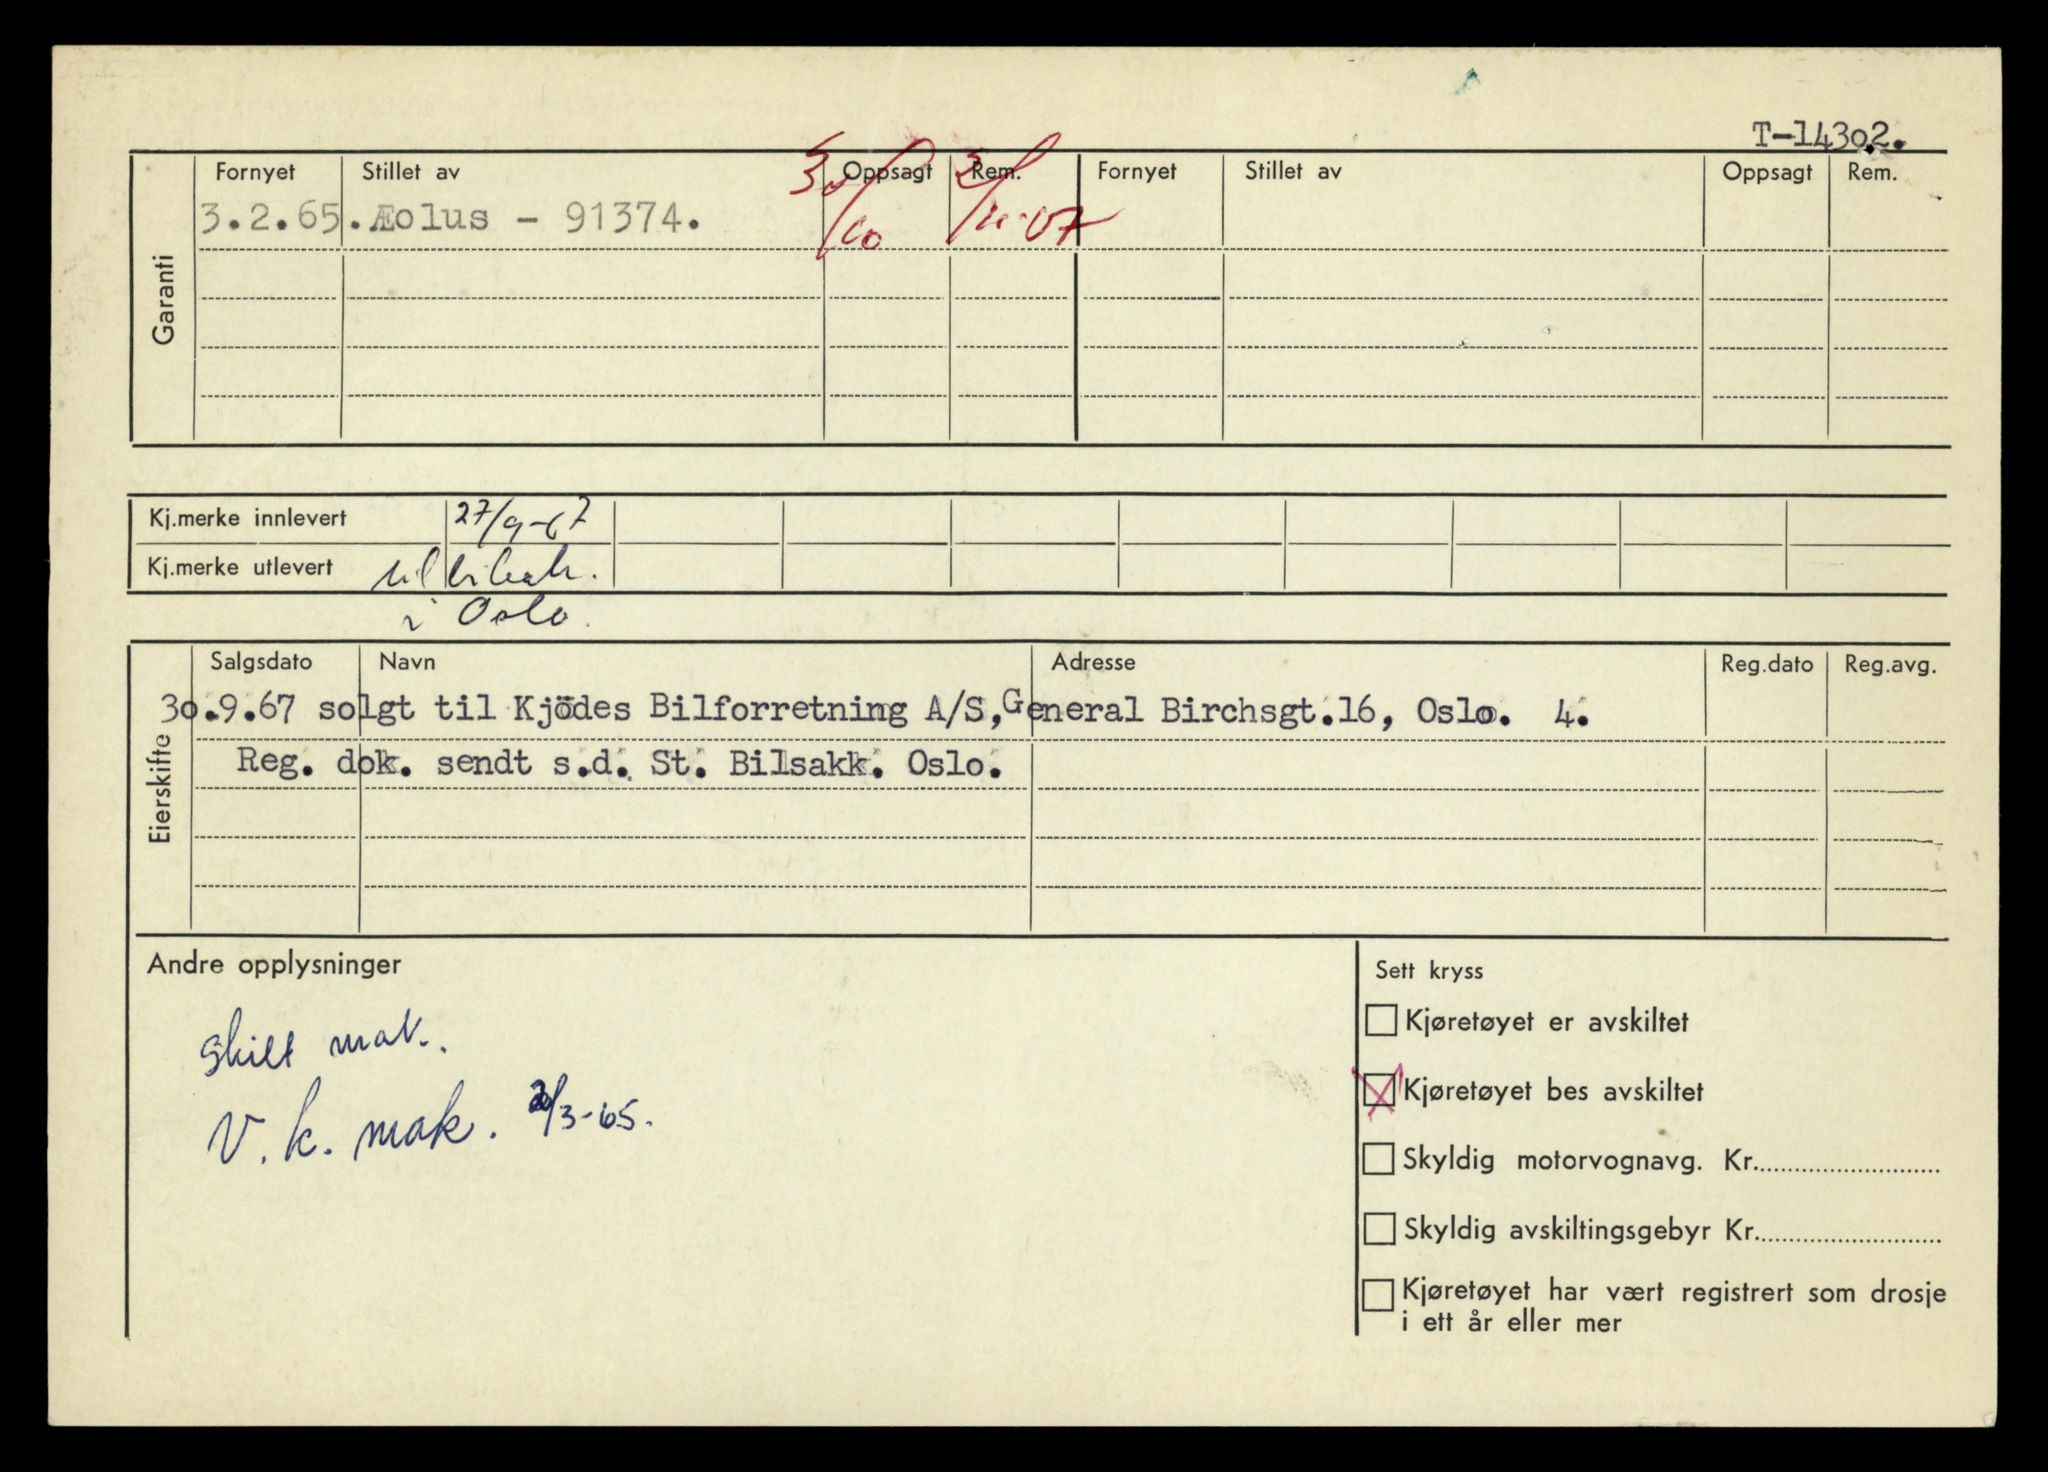 T-14302.
Garanti
Fornyet Stillet av Oppsagt Rem. Fornyet Stillet av Oppsagt Rem.
3.2.65. Æolus - 91374. 30/10
Kj.merke innlevert 27/9-67
Kj.merke utlevert til
i Oslo.
Eierskifte
Salgsdato Navn Adresse Reg.dato Reg.avg.
30.9.67 solgt til Kjödes Bilforretning A/S, General Birchsgt.16, Oslo. 4.
Reg. dok. sendt s.d. St. Bilsakk. Oslo.
Andre opplysninger
skilt mak.
V.k. mak. /3-65.
Sett kryss
Kjøretøyet er avskiltet
Kjøretøyet bes avskiltet
Skyldig motorvognavg. Kr.
Skyldig avskiltingsgebyr Kr.
Kjøretøyet har vært registrert som drosje
i ett år eller mer